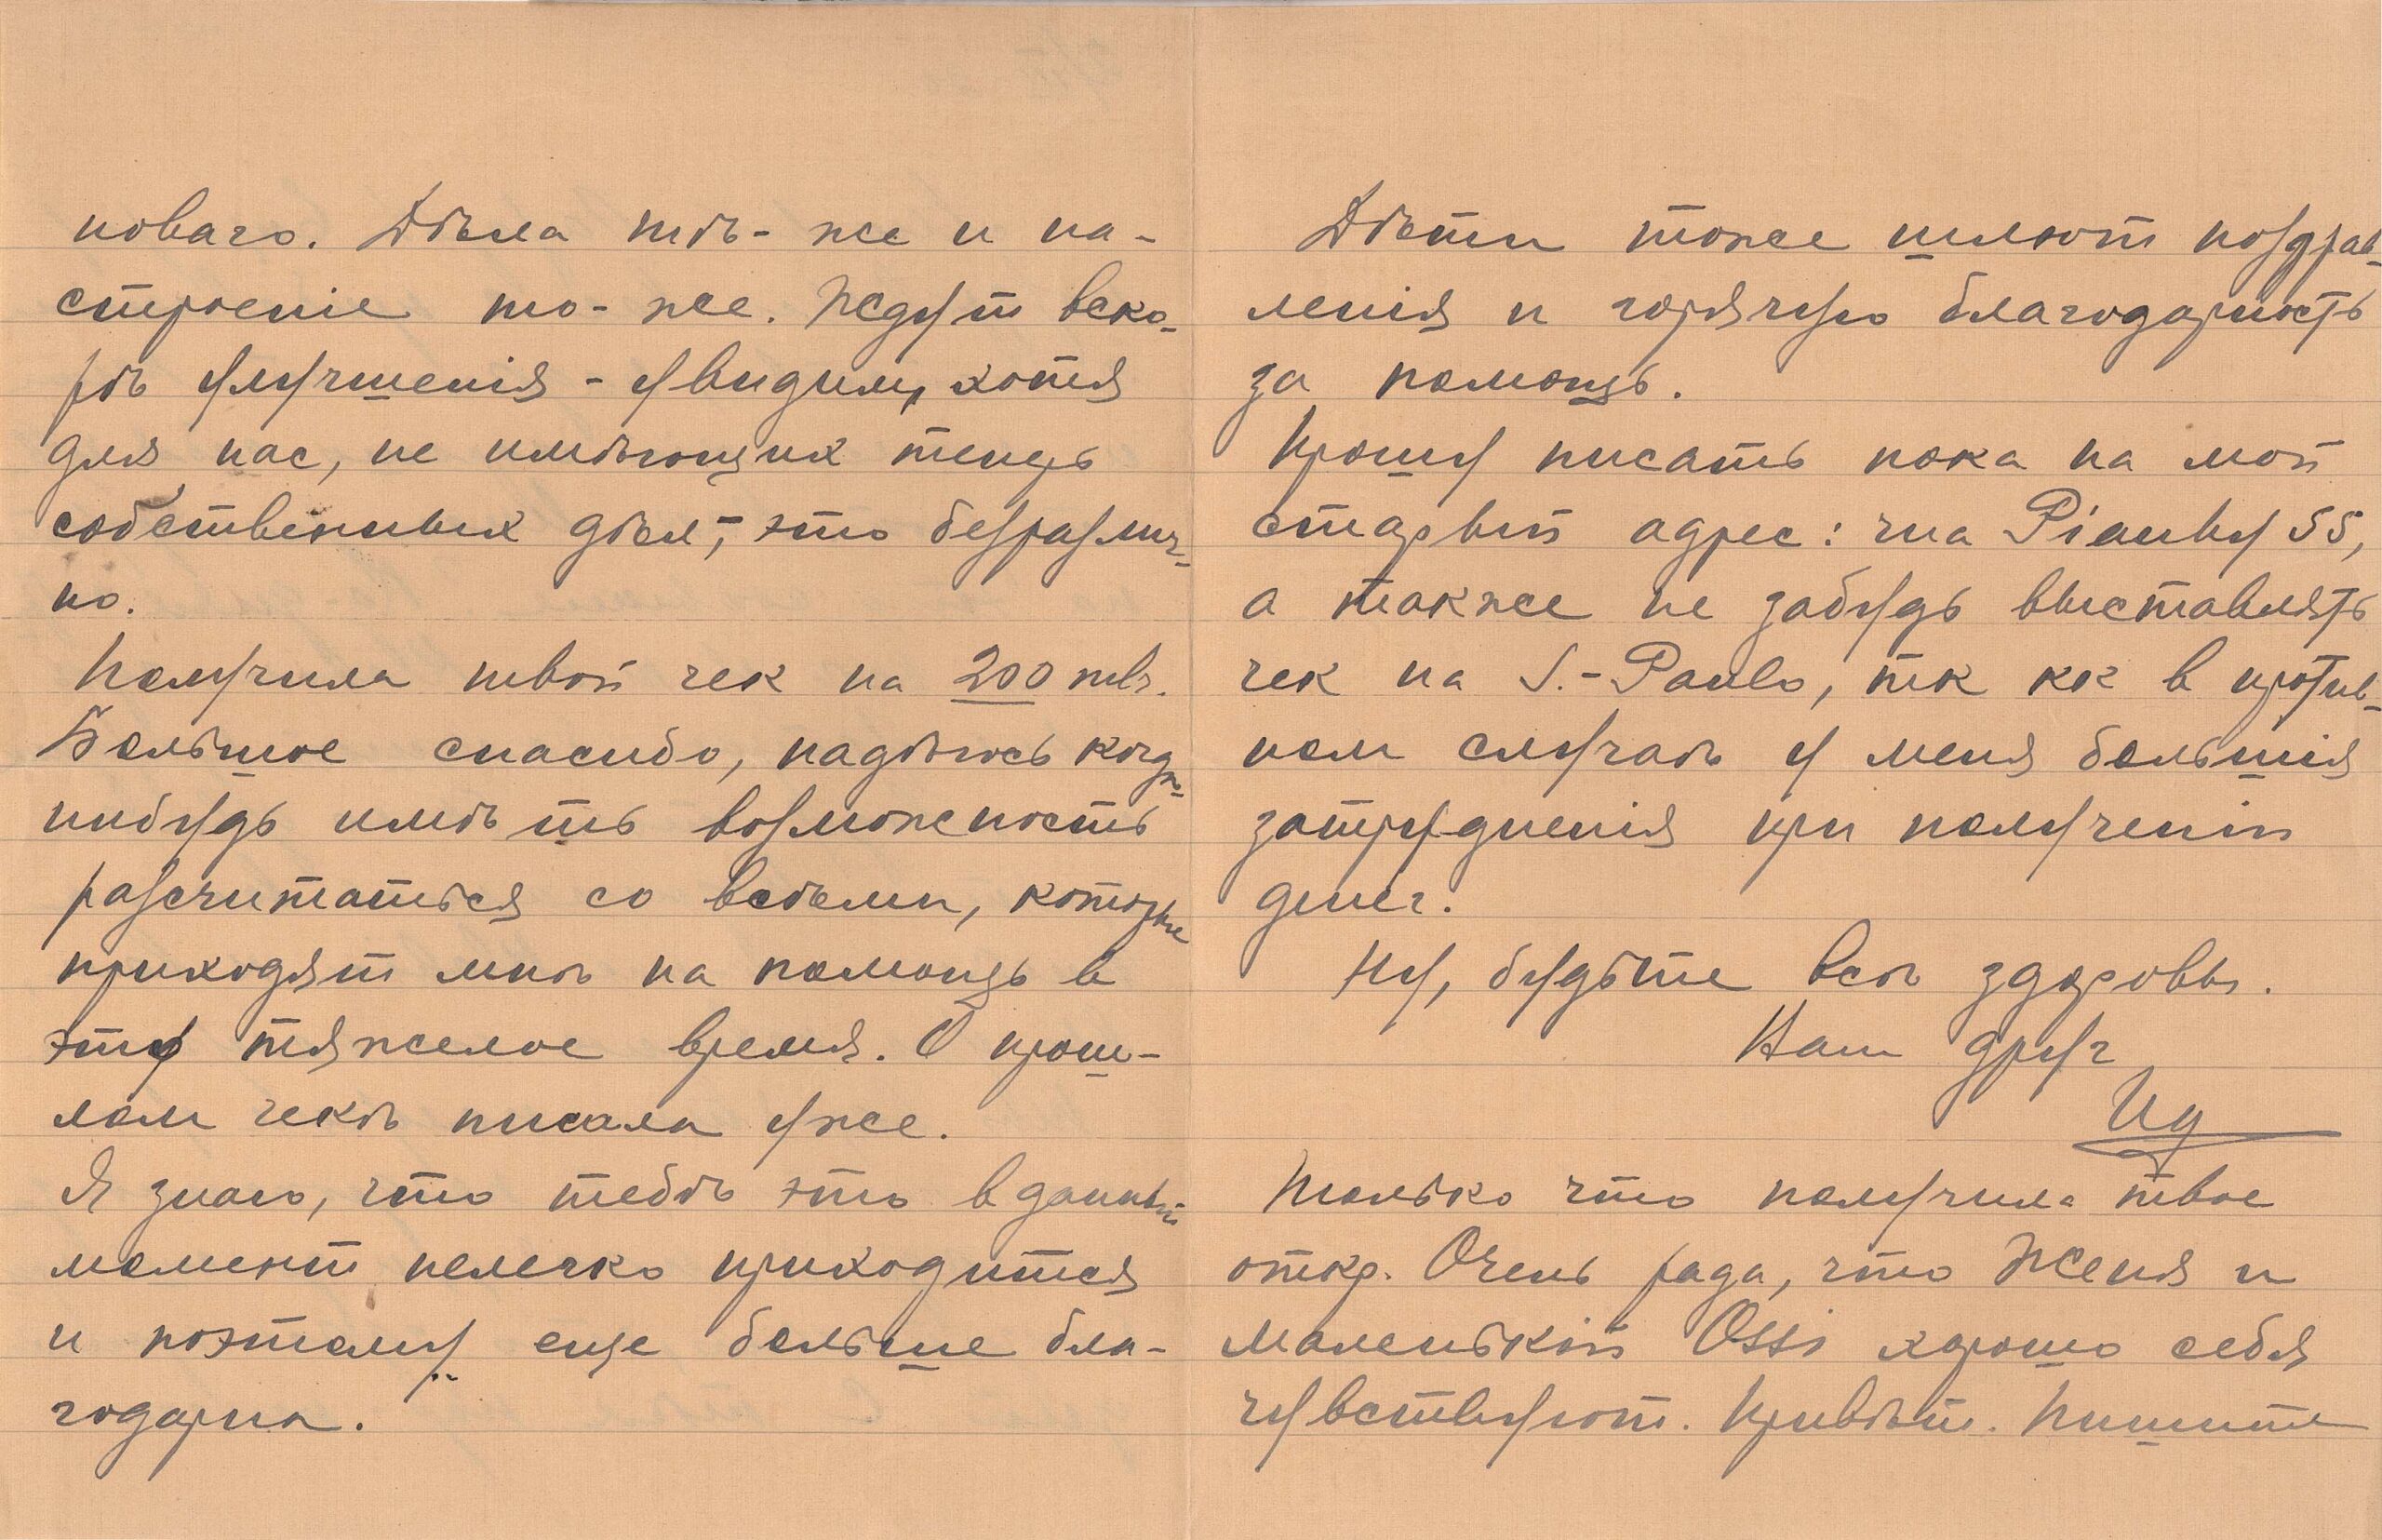 новаго. Дѣла тѣ-же и на-
строеніе то-же. Ждут вско-
рѣ улучшенія - увидим, хотя
для нас, не имѣющих теперь
собственных дѣл, - это безразлич-
но.
Получила твой чек на 200 mlr.
Большое спасибо, надѣюсь когда-
нибудь имѣть возможность
разсчитаться со всѣми, которые
приходят мнѣ на помощь в
это тяжелое время. О прош-
лом чекѣ писала уже.
Я знаю, что тебѣ это в данный
момент нелегко приходится
и поэтому еще больше бла-
годарна.
Дѣти тоже шлют поздрав-
ленія и горячую благодарность
за помощь.
Прошу писать пока на мой
старый адрес: rua Piauhy 55,
а также не забудь выставлять
чек на S.-Paulo, тк кк в против-
ном случаѣ у меня большія
затрудненія при полученіи
денег.
Ну, будьте всѣ здоровы.
Ваш друг
Ид
Только что получила твое
откр. Очень рада, что Женя и
маленькій Ossi хорошо себя
чувствуют. Привѣт. Пишите